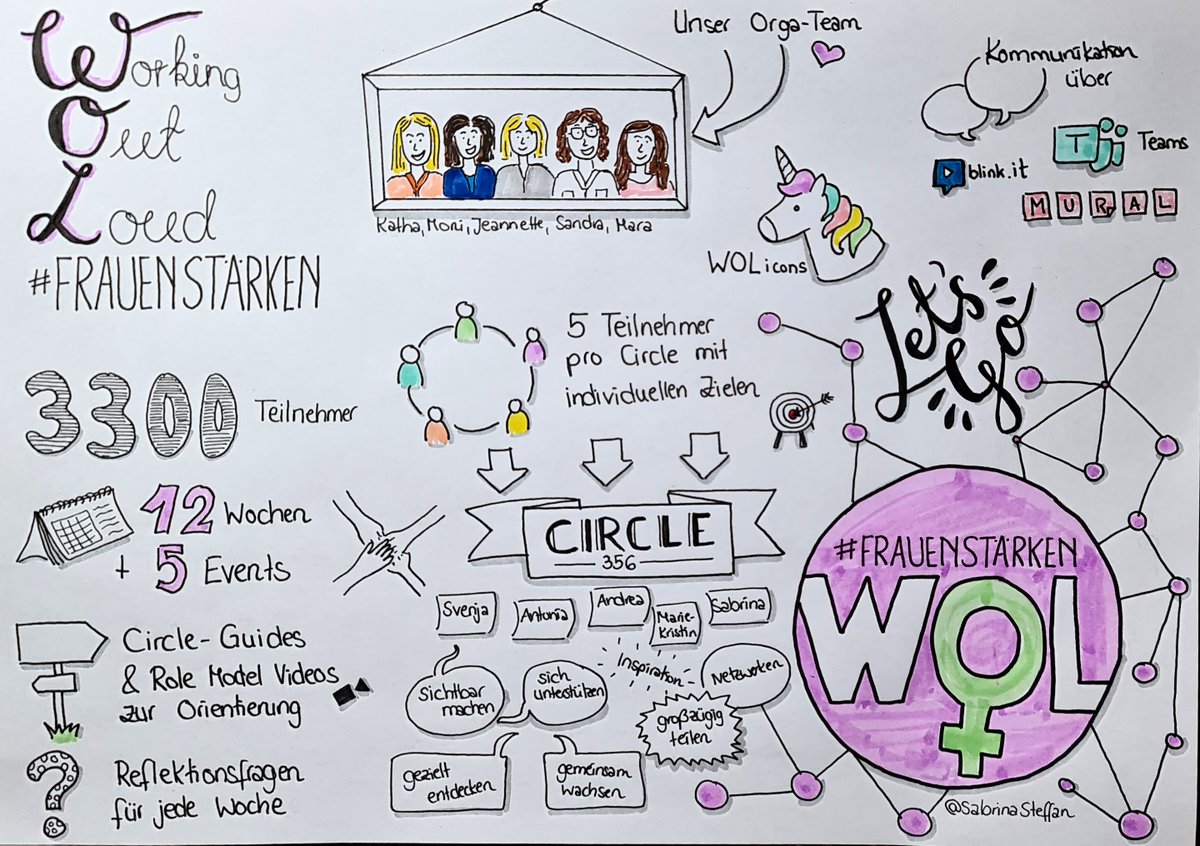 Working
Out
Loud
#FRAUENSTÄRKEN
Unser Orga-Team
Katha, Moni, Jeannette, Sandra, Mara
WOLicons
Kommunikation
über
T
Teams
blink.it
MURAL
Let's
Go
3300 Teilnehmer
5 Teilnehmer
pro Circle mit
individuellen Zielen
12 Wochen
+ 5 Events
CIRCLE
356
Svenja
Antonia
Andrea
Marie-
Kristin
Sabrina
Circle-Guides
& Role Model Videos
zur Orientierung
Reflektionsfragen
für jede Woche
sichtbar
machen
sich
unterstützen
Inspiration
Netzwerken
großzügig
teilen
gezielt
entdecken
gemeinsam
wachsen
#FRAUENSTÄRKEN
WOL
@SabrinaSteffan